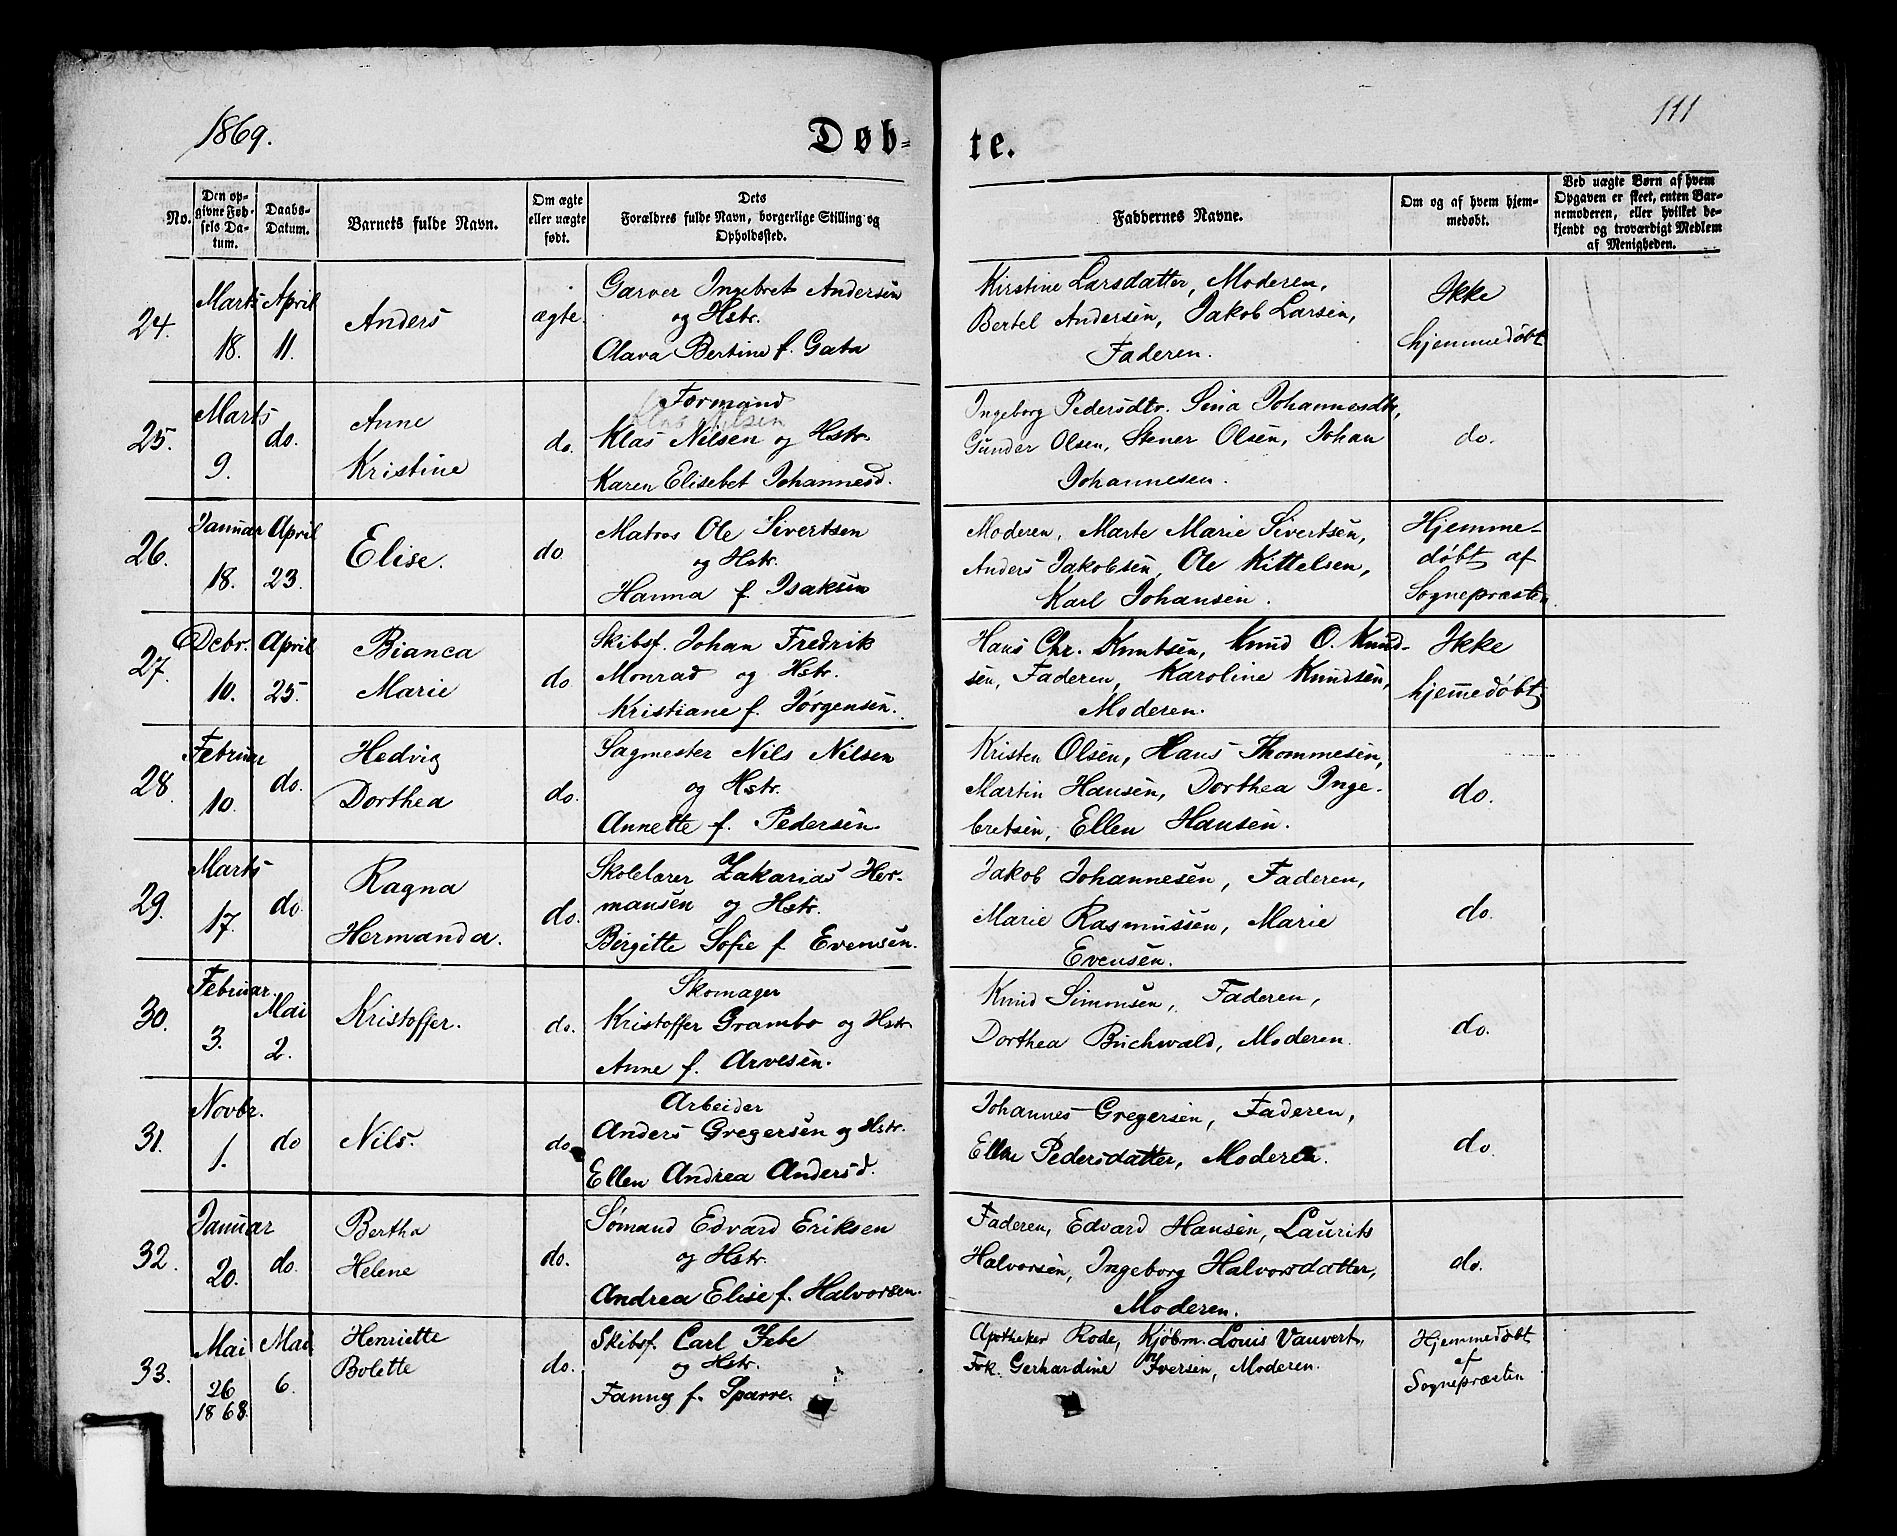 1869.
111
Døb-
te.
No.
Den op-
givne Fød-
sels Da-
tum.
Daabs-
Datum.
Barnets fulde Navn.
Om ægte
eller uægte
født.
Dets
Forældres fulde Navn, borgerlige Stilling og
Opholdssted.
Faddernes Navne.
Om og af hvem hjem-
medøbt.
Ved uægte Børn af hvem
Opgaven er skeet, enten Bar-
nemoderen, eller hvilket be-
kjendt og troværdigt Medlem
af Menigheden.
24.
Marts
18.
April
11.
Anders
ægte.
Garver Ingebret Andersen
og Hstr.
Olava Bertine f. Gata
Kirstine Larsdatter, Moderen,
Bertel Andersen, Jakob Larsen,
Faderen.
Ikke
hjemmedøbt
25.
Marts
9.
do.
Anne
Kristine
do.
Formand
Klas Nilsen og Hstr.
Karen Elisebet Johannesd.
Ingeborg Pedersdtr. Sina Johannesdtr,
Gunder Olsen, Stener Olsen, Johan
Johannesen.
do.
26.
Januar
18.
April
23.
Elise.
do
Matros Ole Sivertsen
og Hstr.
Hanna f. Isaksen
Moderen, Marte Marie Sivertsen,
Anders Jakobsen, Ole Kittelsen,
Karl Johansen.
Hjemme-
døbt af
Sognepræsten.
27.
Decbr.
10.
April
25.
Bianca
Marie
do
Skibsf. Johan Fredrik
Monrad og Hstr.
Kristiane f. Jørgensen.
Hans Chr. Knutsen, Knud O. Knud-
sen, Faderen, Karoline Knudsen,
Moderen.
Ikke
hjemedøbt
28.
Februar
10.
do.
Hedvig
Dorthea
do.
Sagmester Nils Nilsen
og Hstr.
Annette f. Pedersen.
Kristen Olsen, Hans Thommesen,
Martin Hansen, Dorthea Inge-
bretsen, Ellen Hansen.
do.
29.
Marts
17.
do.
Ragna
Hermanda.
do.
Skolelærer Zakarias Her-
mansen og Hstr.
Birgitte Sofie f Evensen.
Jakob Johannesen, Faderen,
Marie Rasmussen, Marie
Evensen.
do.
30.
Februar.
3.
Mai
2.
Kristoffer.
do.
Skomager
Kristoffer Grambo og Hstr
Anne f. Arvesen.
Knud Simonsen, Faderen,
Dorthea Buchwald, Moderen.
do.
31.
Novbr.
1.
do
Nils.
do
Arbeider
Anders Gregersen og Hstr.
Ellen Andrea Andersd.
Johannes Gregersen, Faderen,
Ellen Pedersdatter, Moderen.
do
32.
Januar
20.
do.
Bertha
Helene
do.
Sømand Edvard Eriksen
og Hstr.
Andrea Elise f. Halvorsen.
Faderen, Edvard Hansen, Laurits
Halvorsen, Ingeborg Halvorsdatter,
Moderen.
do.
33.
Mai
26
1868.
Mai
6.
Henriette
Bolette
do.
Skibsf. Carl Jebe
og Hstr.
Fanny f. Sparre.
Apotheker Rode, Kjøbm. Louis Vauvert,
Frk. Gerhardine Iversen, Moderen.
Hjemmedøbt
af
Sognepræsten